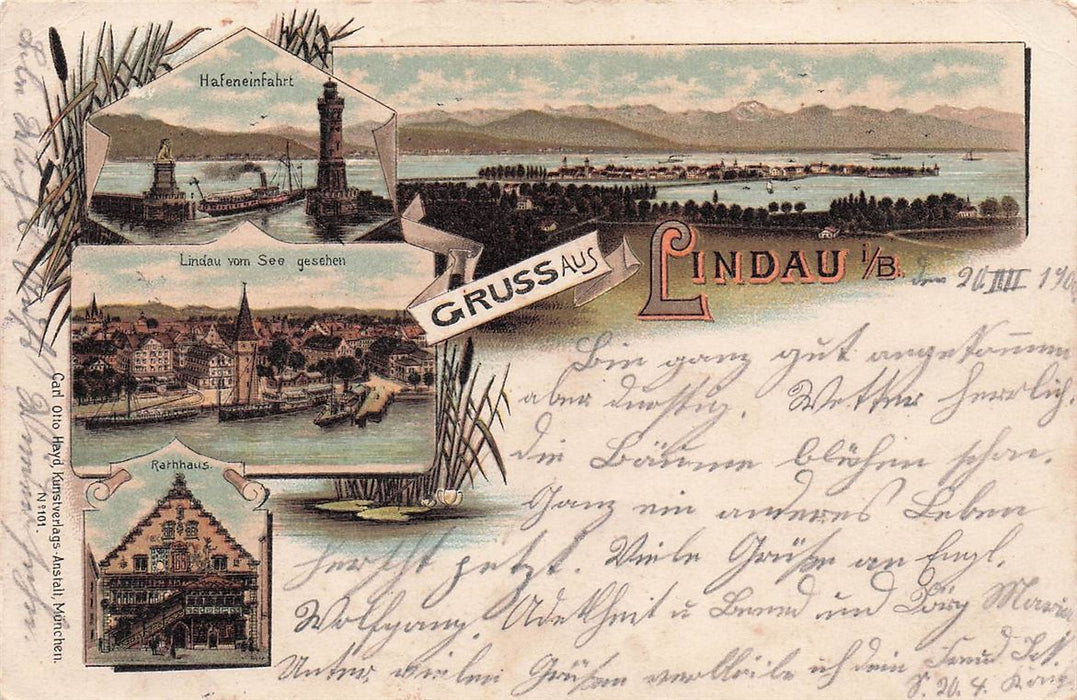 Hafeneinfahrt
Lindau vom See gesehen
Rathhaus.
GRUSS AUS
LINDAU i/B.
Carl Otto Hayd Kunstverlags-Anstalt, München.
Nº 101.
den 20. 190
Bin ganz gut angekommen
aber durstig. Wetter herrlich.
die Bäume blühen schon.
Ganz ein anderes Leben
herscht jetzt. Viele Grüße an Engl.
Wolfgang. u und Maria
Unter vielen Grüßen verbleibe ich dein Freund
S. 20. 4.